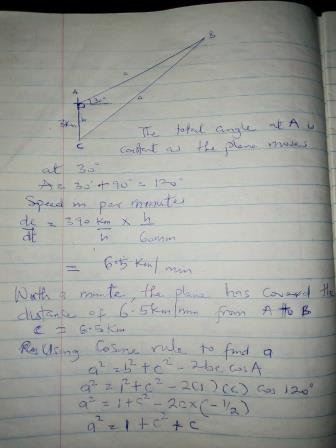 B
A
c
130°
b
a
3km
C
The total angle at A is
constant as the plane moves
at 30°
A = 30° + 90° = 120°
Speed in per minute
dc/dt = 390 km/h × h/60min
= 6.5 km/min
With a minute, the plane has covered the
distance of 6.5km/min from A to B
c = 6.5km
Using Cosine rule to find a
a² = b² + c² - 2bc cos A
a² = 1² + c² - 2(1)(c) cos 120°
a² = 1 + c² - 2c × (-1/2)
a² = 1 + c² + c